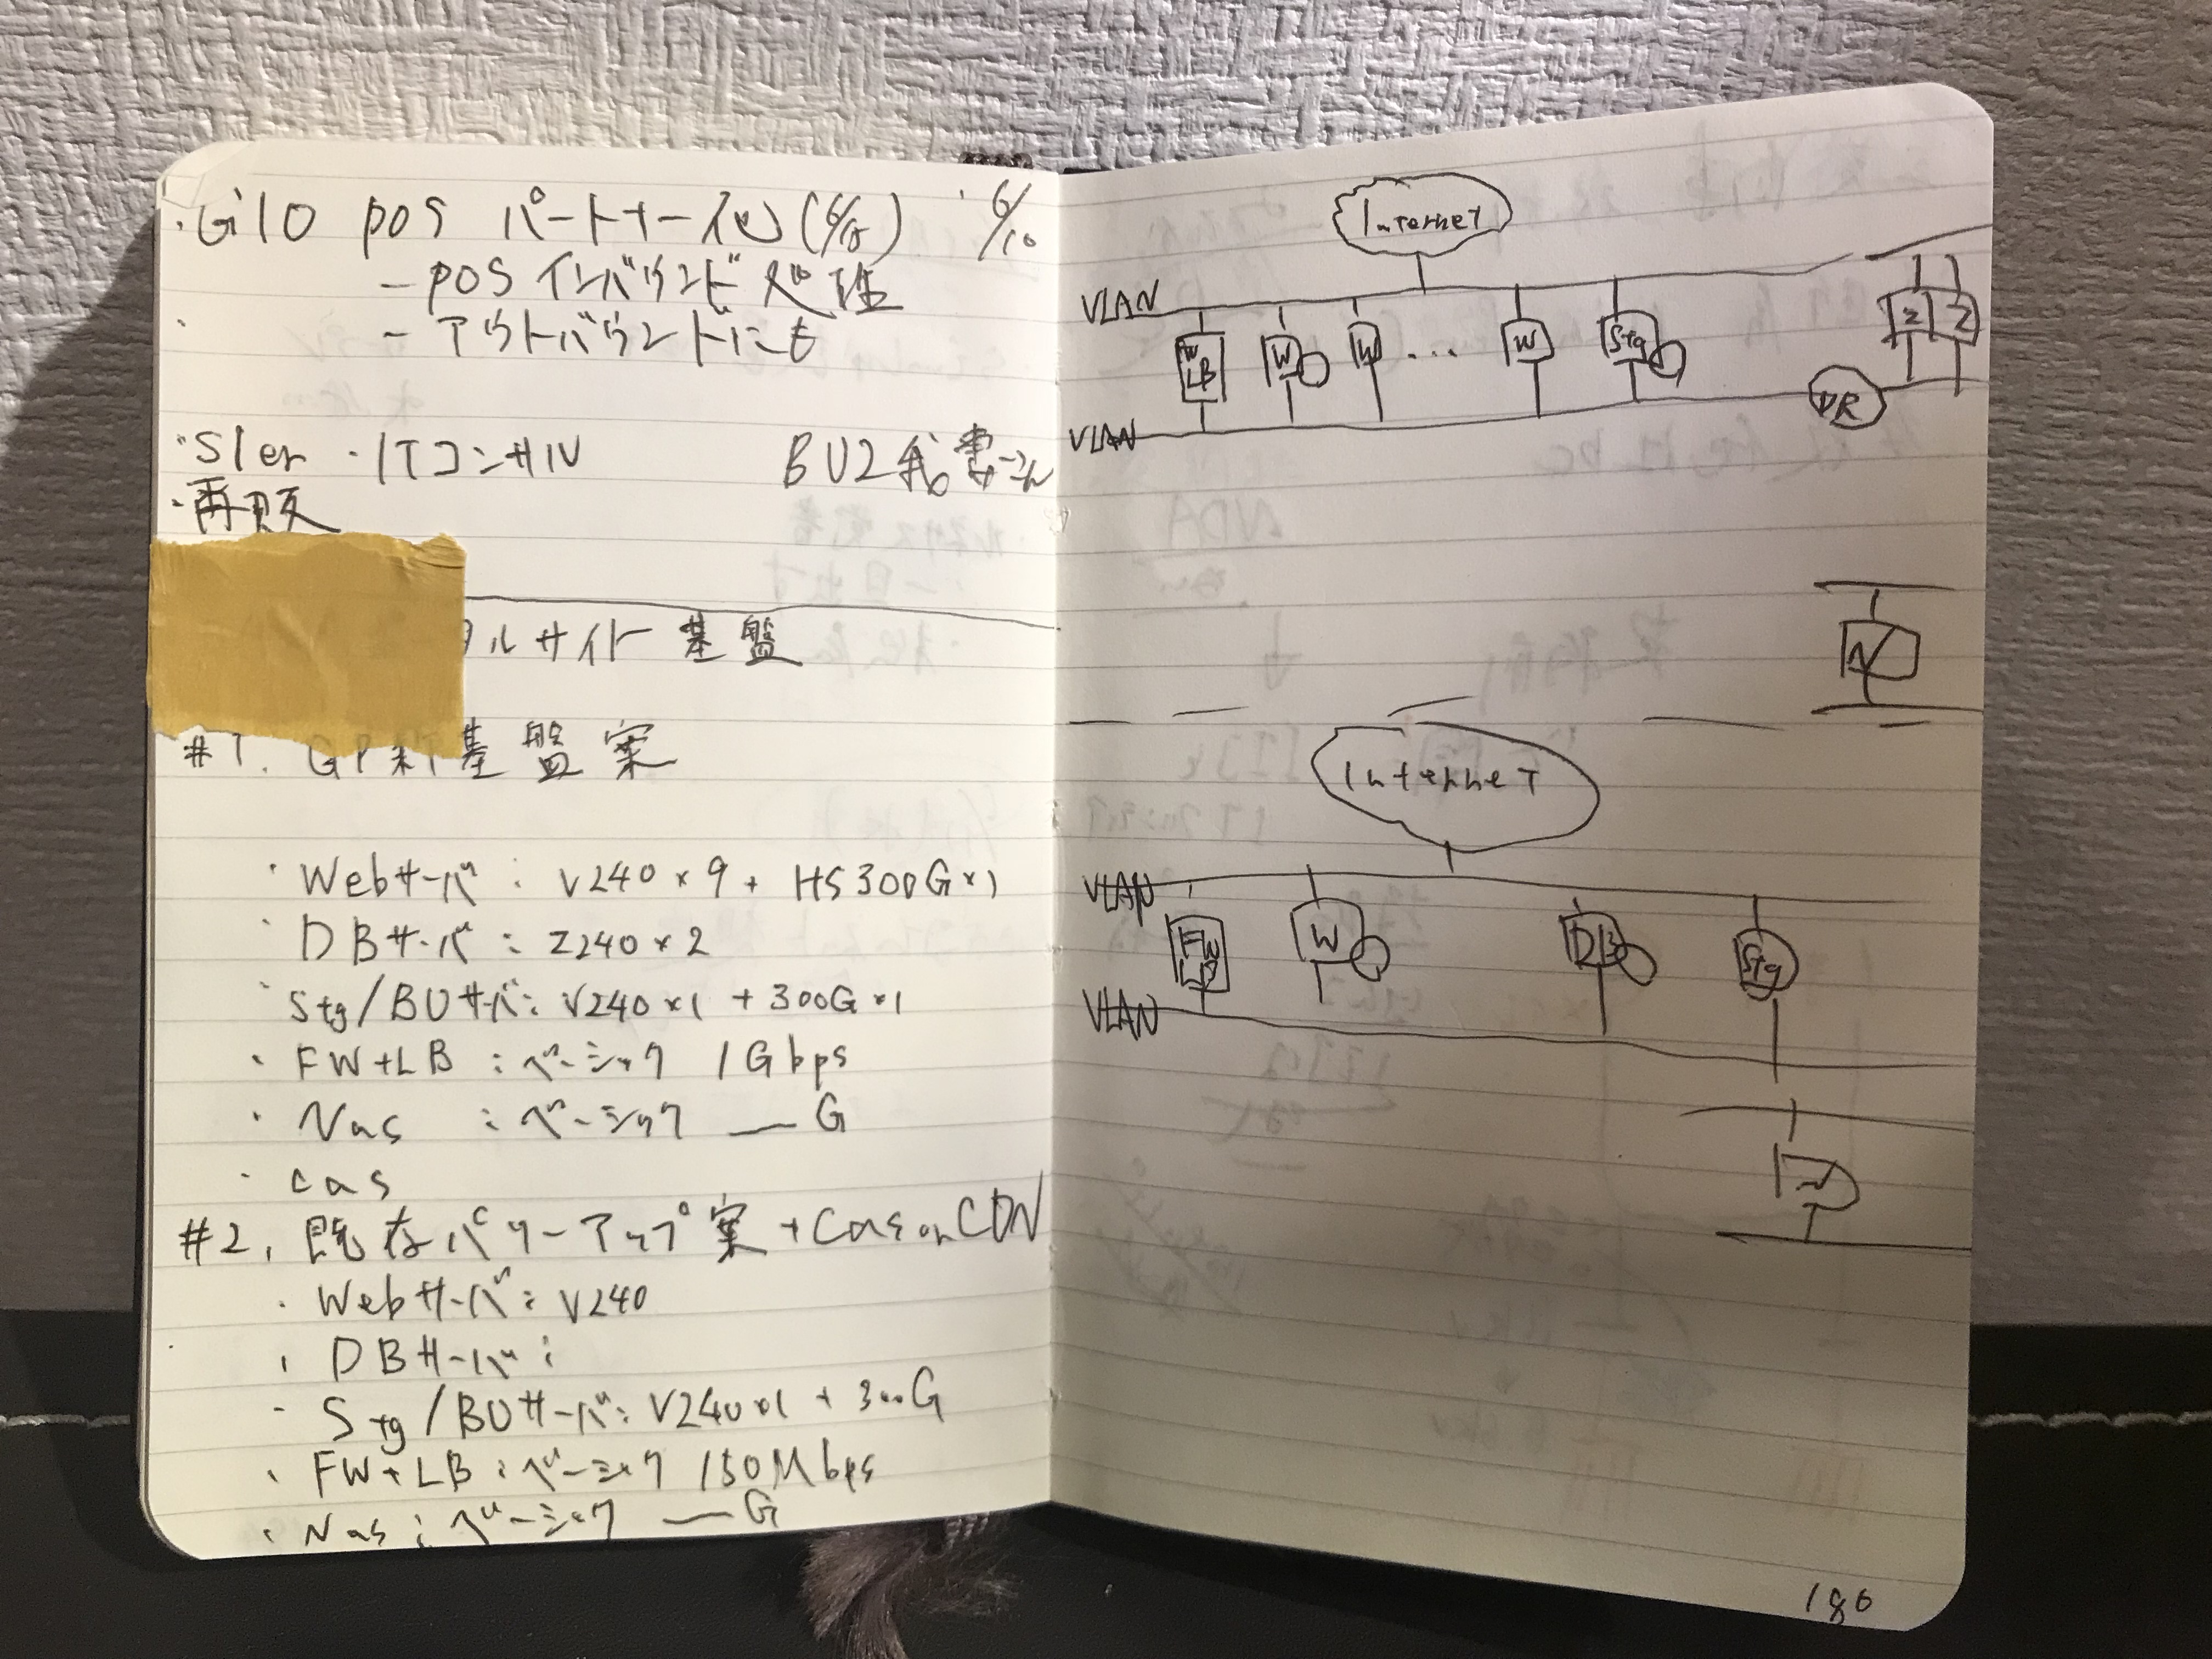 ・GIO POS パートナー化 (6/8) ・6/10
- POS インバウンド処理
- アウトバウンドにも
・SIer ・ITコンサル BU2
・再販
タルサイト基盤
#1. GP新基盤案
・Webサーバ : V240×9 + HS300G×1
・DBサーバ : Z240×2
・Stg/BUサーバ : V240×1 + 300G×1
・FW+LB : ベーシック 1Gbps
・Nas : ベーシック __G
・cas
#2. 既存パワーアップ案 + Cas on CDN
・Webサーバ : V240
・DBサーバ :
・Stg/BUサーバ : V240×1 + 300G
・FW+LB : ベーシック 150Mbps
・Nas : ベーシック __G
Internet
VLAN
LB W W ... W Stg Z Z
DR
VLAN
N
Internet
VLAN
FW LB W DB Stg
VLAN
N
180